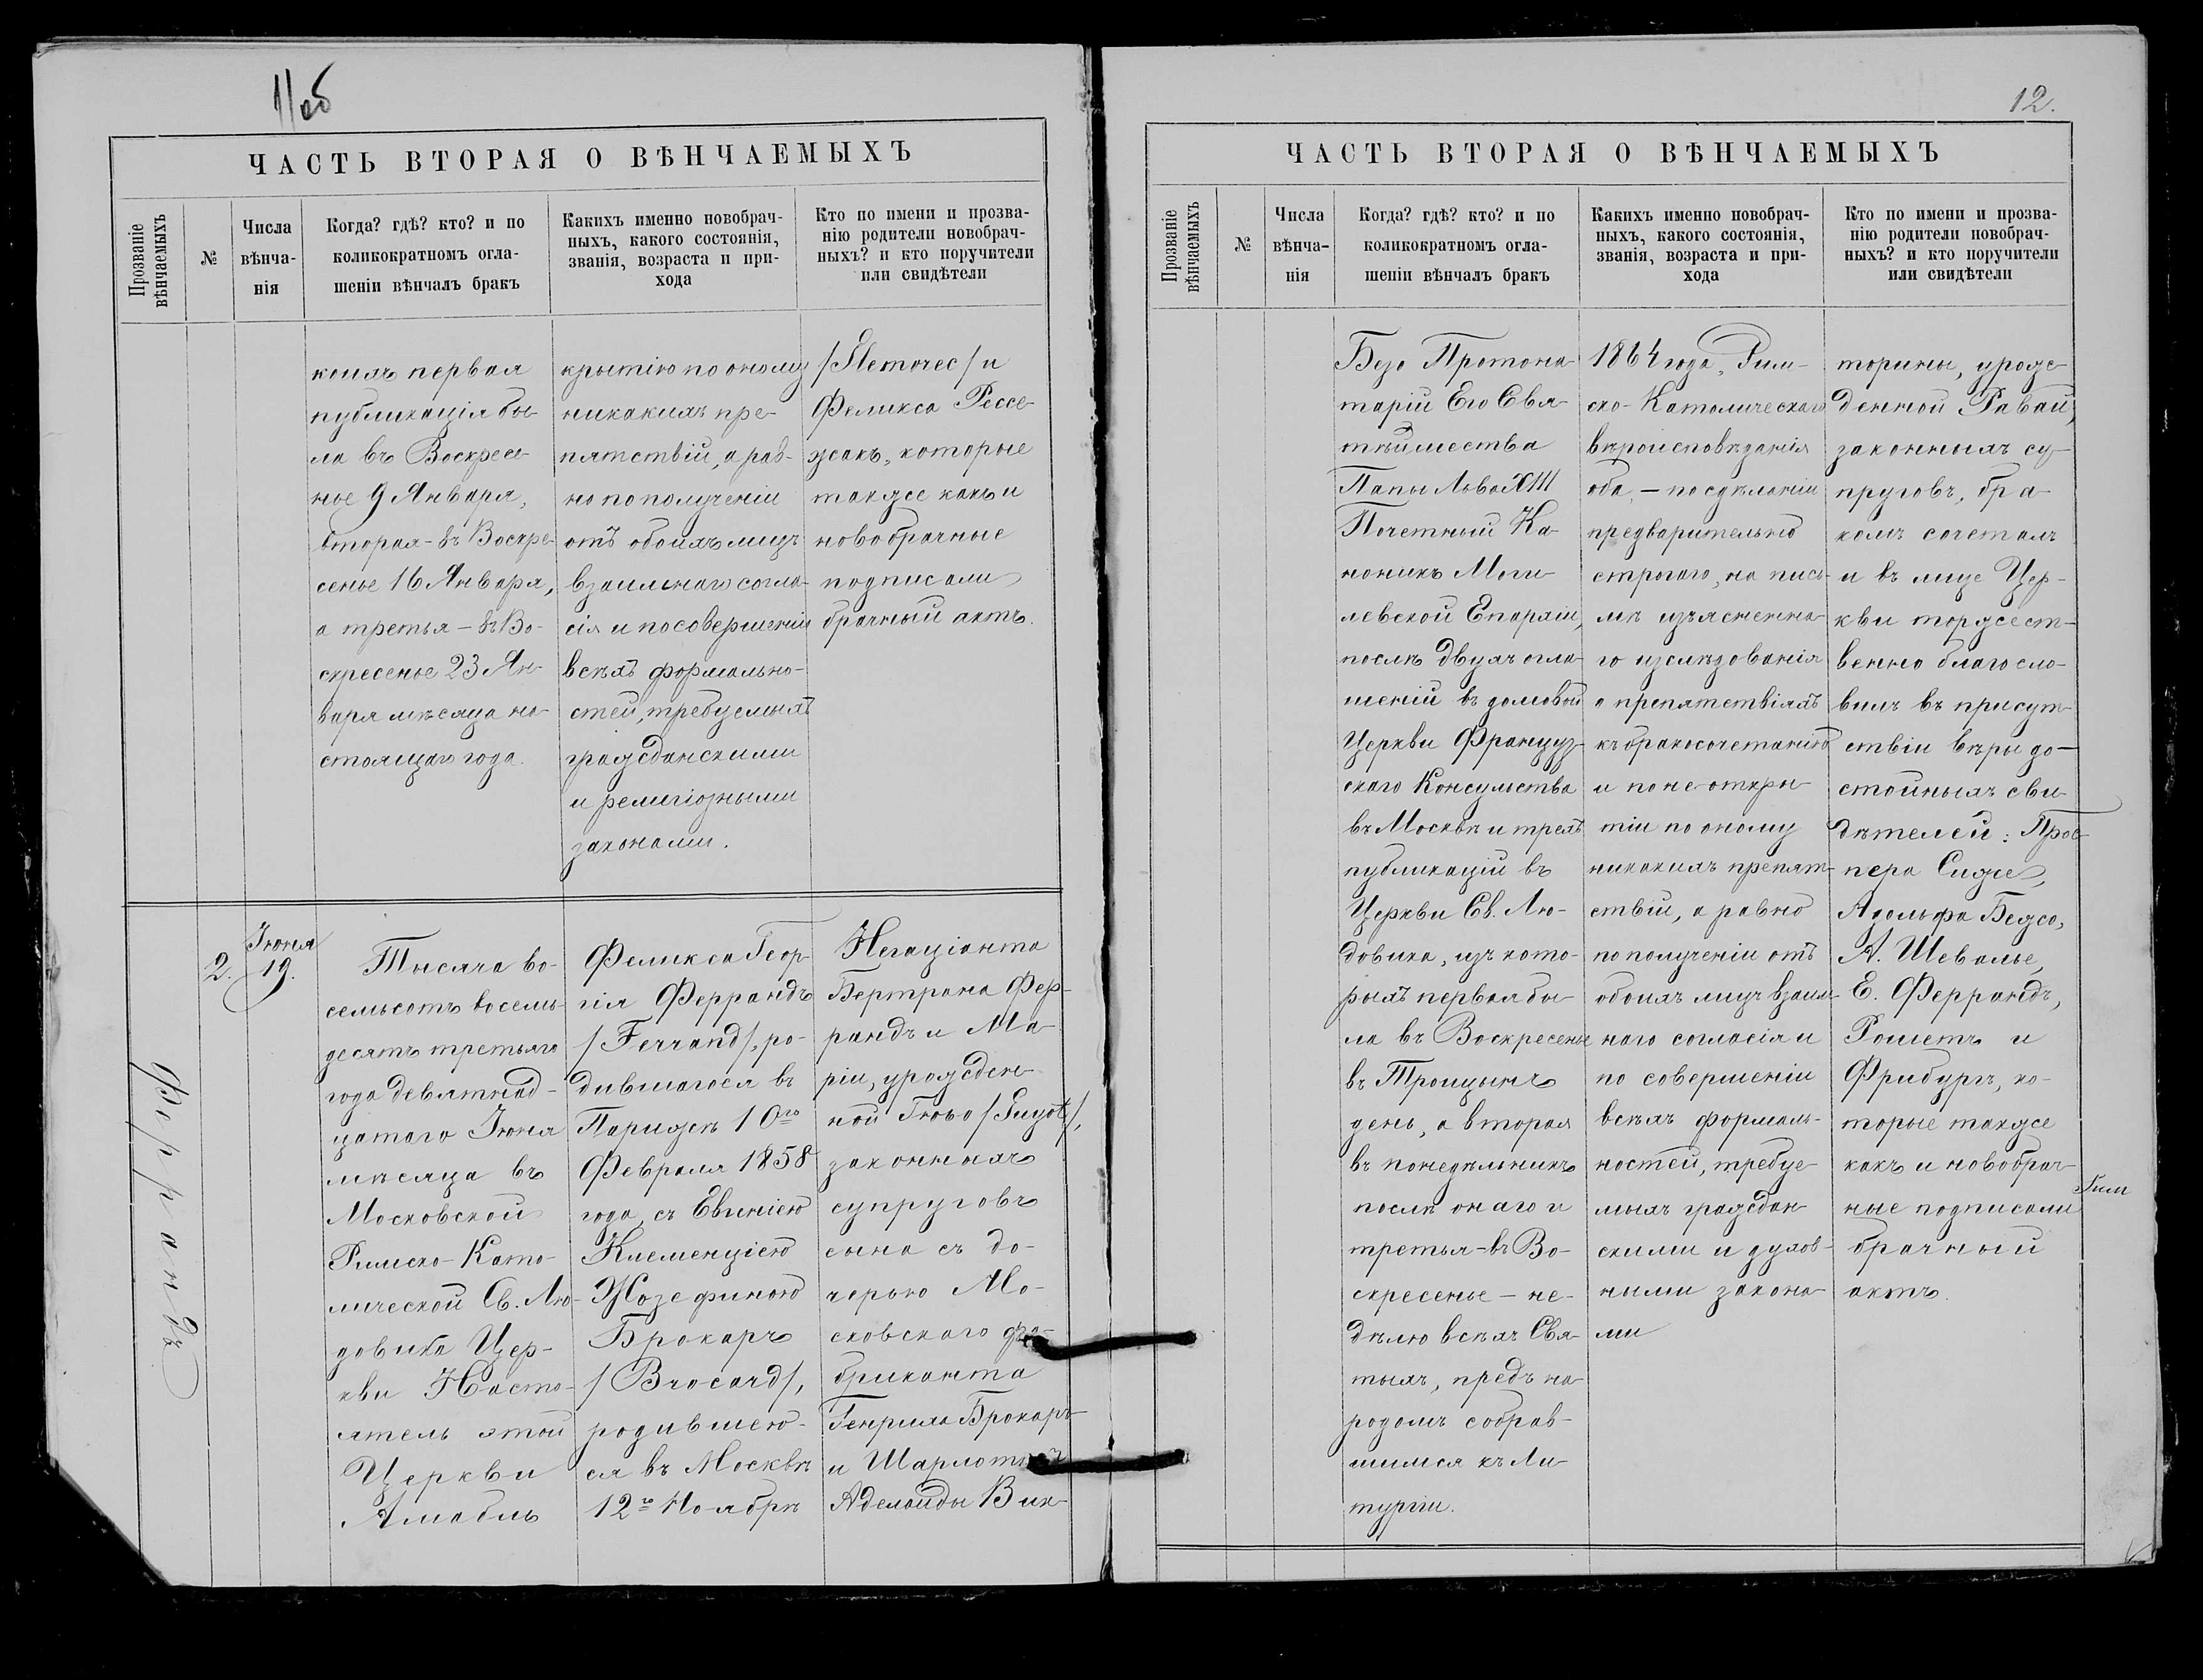 11об
ЧАСТЬ ВТОРАЯ О ВѢНЧАЕМЫХЪ
Прозваніе
вѣнчаемыхъ
№
Числа
вѣнча-
нія
Когда? гдѣ? кто? и по
коликократномъ огла-
шеніи вѣнчалъ бракъ
Какихъ именно новобрач-
ныхъ, какого состоянія,
званія, возраста и при-
хода
Кто по имени и прозва-
нію родители новобрач-
ныхъ? и кто поручители
или свидѣтели
коихъ первая
публикація бы-
ла въ Воскресе-
нье 9 Января,
вторая - въ Воскре-
сенье 16 Января,
а третья - въ Во-
скресенье 23 Ян-
варя мѣсяца на-
стоящаго года.
крытію по оному
никакихъ пре-
пятствій, а рав-
но по полученіи
отъ обоихъ лицъ
взаимнаго согла-
сія и по совершеніи
всѣхъ формально-
стей, требуемыхъ
гражданскими
и религіозными
законами.
и
Феликса Рессе-
жакъ, которые
также какъ и
новобрачные
подписали
брачный актъ.
2.
Іюня
19.
Феррандъ
Тысяча во-
семьсотъ восемь-
десятъ третьяго
года девятнад-
цатаго Іюня
мѣсяца въ
Московской
Римско-Като-
лической Св. Лю-
довика Цер-
кви Насто-
ятель этой
Церкви
Амабль
Феликса Геор-
гія Феррандъ
/Ferrand/, ро-
дившагося въ
Парижѣ 10го
Февраля 1858
года, съ Евгеніею
Клеменціею
Жозефиною
Брокаръ
/Brocard/,
родившею-
ся въ Москвѣ
12го Ноября
Негаціанта
Бертрана Фер-
рандъ и Ма-
ріи, урожден-
ной Гюьо /Guyot/,
законныхъ
супруговъ
сына съ до-
черью Мо-
сковскаго фа-
бриканта
Генриха Брокаръ
и Шарлотты
Аделаиды Вик-
12.
ЧАСТЬ ВТОРАЯ О ВѢНЧАЕМЫХЪ
Прозваніе
вѣнчаемыхъ
№
Числа
вѣнча-
нія
Когда? гдѣ? кто? и по
коликократномъ огла-
шеніи вѣнчалъ бракъ
Какихъ именно новобрач-
ныхъ, какого состоянія,
званія, возраста и при-
хода
Кто по имени и прозва-
нію родители новобрач-
ныхъ? и кто поручители
или свидѣтели
Буо Протоно-
тарій Его Свя-
тѣйшества
Папы Льва XIII
Почетный Ка-
ноникъ Моги-
левской Епархіи,
послѣ двухъ огла-
шеній въ домовой
Церкви Француз-
скаго Консульства
въ Москвѣ и трехъ
публикацій въ
Церкви Св. Лю-
довика, изъ кото-
рыхъ первая бы-
ла въ Воскресенье
въ Троицынъ
день, а вторая
въ понедѣльникъ
послѣ онаго и
третья - въ Во-
скресенье - не-
дѣлю всѣхъ Свя-
тыхъ, предъ на-
родомъ собрав-
шимся къ Ли-
тургіи.
1864 года, Рим-
ско-Католическаго
вѣроисповѣданія
оба, - по сдѣланіи
предварительно
строгаго, на пись-
мѣ изъясненна-
го изслѣдованія
о препятствіяхъ
къ бракосочетанію
и по не откры-
тіи по оному
никакихъ препят-
ствій, а равно
по полученіи отъ
обоихъ лицъ взаим-
наго согласія и
по совершеніи
всѣхъ формаль-
ностей, требуе-
мыхъ граждан-
скими и духов-
ными закона-
ми
торины, урож-
денной Равай,
законныхъ су-
пруговъ, бра-
комъ сочеталъ
и въ лице Цер-
кви торжест-
венно благосло-
вилъ въ присут-
ствіи вѣры до-
стойныхъ сви-
дѣтелей: Прос-
пера Сиже,
Адольфа Бежо,
А. Шевалье,
Е. Феррандъ,
Рошетъ и
Фрибургъ, ко-
торые также
какъ и новобрач-
ные подписали
брачный
актъ.